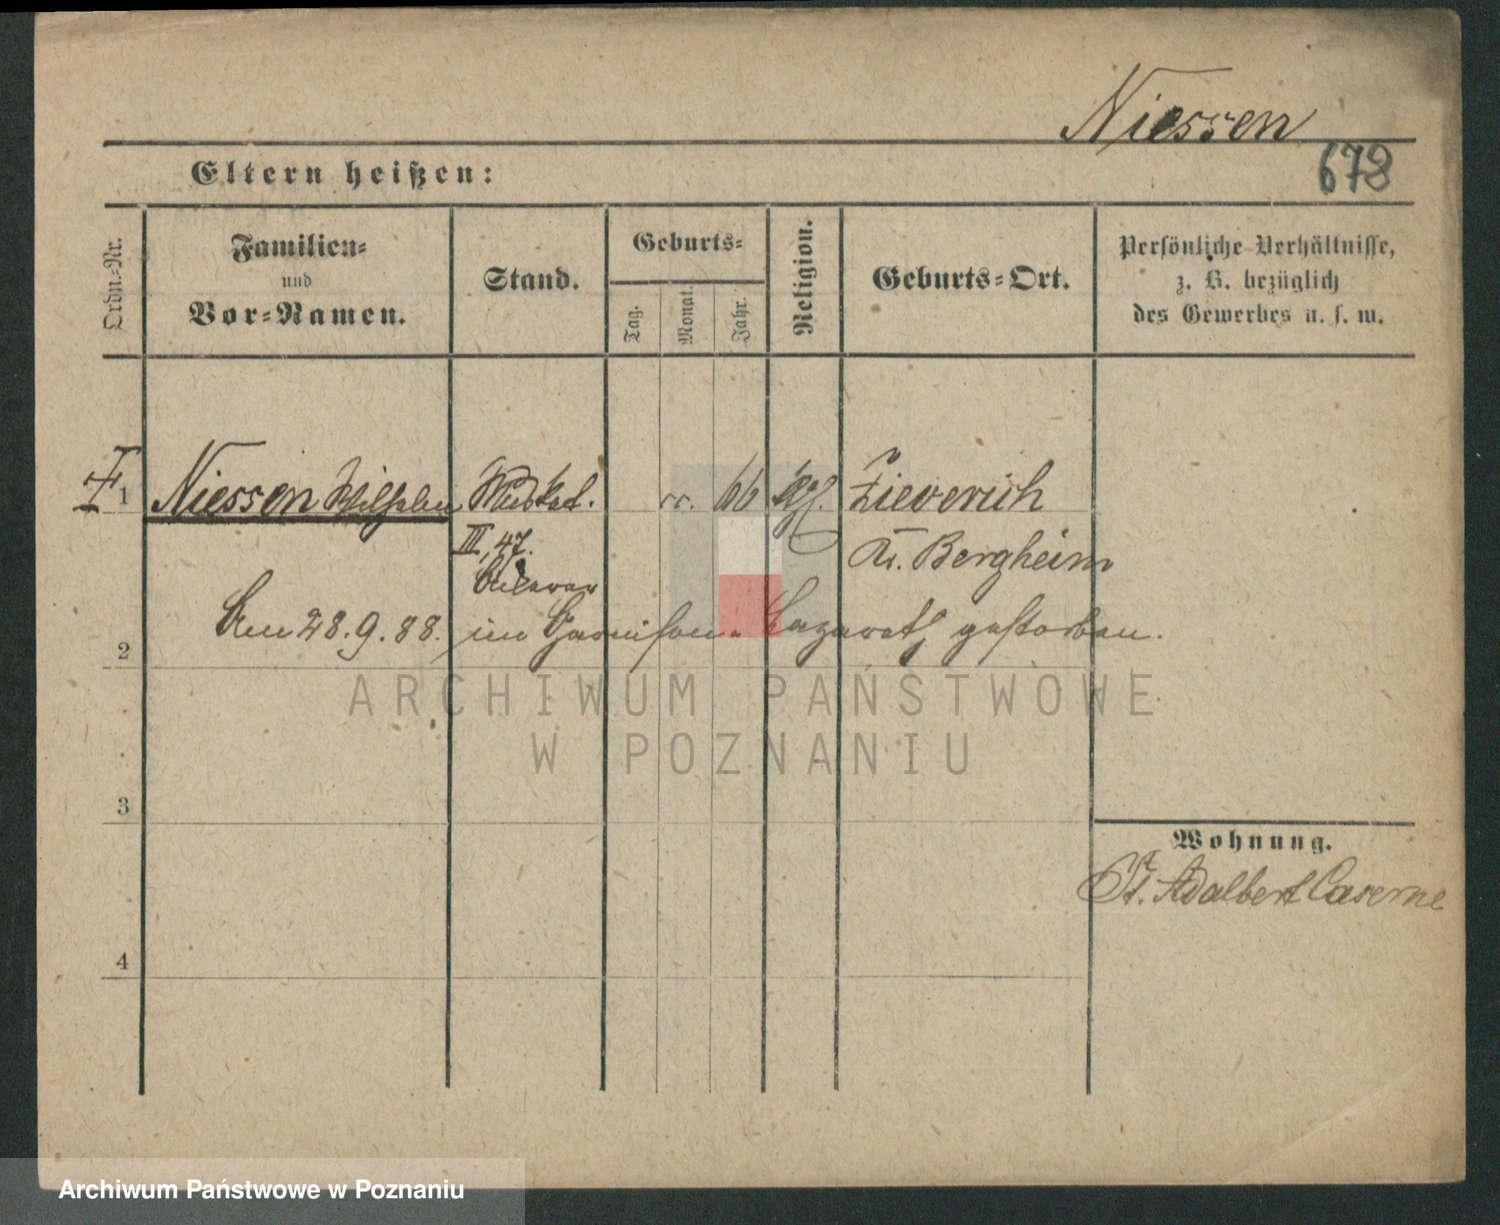 Niessen
678
Eltern heißen:
Ordn.-Nr.
Familien-
und
Vor-Namen.
Stand.
Geburts-
Tag.
Monat.
Jahr.
Religion.
Geburts-Ort.
Persönliche Verhältnisse,
z. B. bezüglich
des Gewerbes u. s. w.
1 Niessen Wilhelm Musket. 66 Zieverich
III, 47. Kr. Bergheim
Am 28.9.88. im Garnison-Lazareth gestorben.
2
3
4
Wohnung.
St. Adalbert Caserne
ARCHIWUM PAŃSTWOWE
W POZNANIU
Archiwum Państwowe w Poznaniu